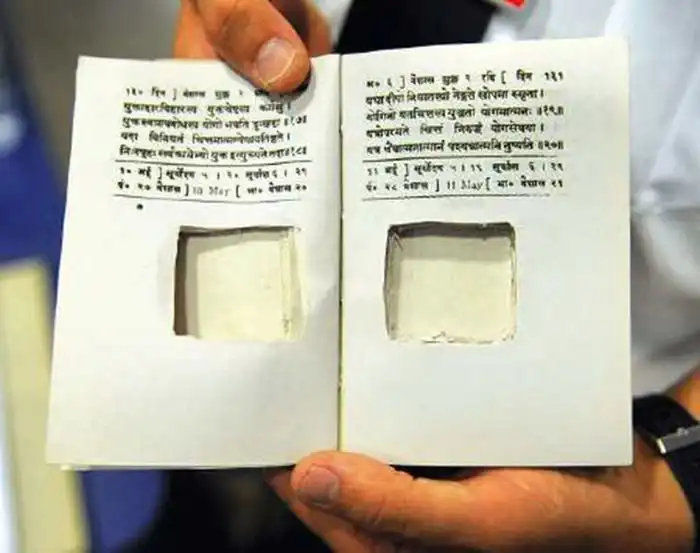 १३० दिन ] वैशाख शुक्ल
युक्ताहारविहारस्य युक्तचेष्टस्य कर्मसु ।
युक्तस्वप्नावबोधस्य योगो भवति दुःखहा ॥१७॥
यदा विनियतं चित्तमात्मन्येवावतिष्ठते ।
निःस्पृहः सर्वकामेभ्यो युक्त इत्युच्यते तदा ॥१८॥
१० मई ] सूर्योदय ५ । २० सूर्यास्त ६ ।
पं० २७ वैशाख ] 10 May [ भा० वैशाख २०
अ० ६ ] वैशाख शुक्ल ९ रवि [ दिन १३१
यथा दीपो निवातस्थो नेङ्गते सोपमा स्मृता ।
योगिनो यतचित्तस्य युञ्जतो योगमात्मनः ॥१९॥
यत्रोपरमते चित्तं निरुद्धं योगसेवया ।
यत्र चैवात्मनात्मानं पश्यन्नात्मनि तुष्यति ॥२०॥
११ मई ] सूर्योदय ५ । १९ सूर्यास्त ६ ।
पं० २८ वैशाख ] 11 May [ भा० वैशाख २१